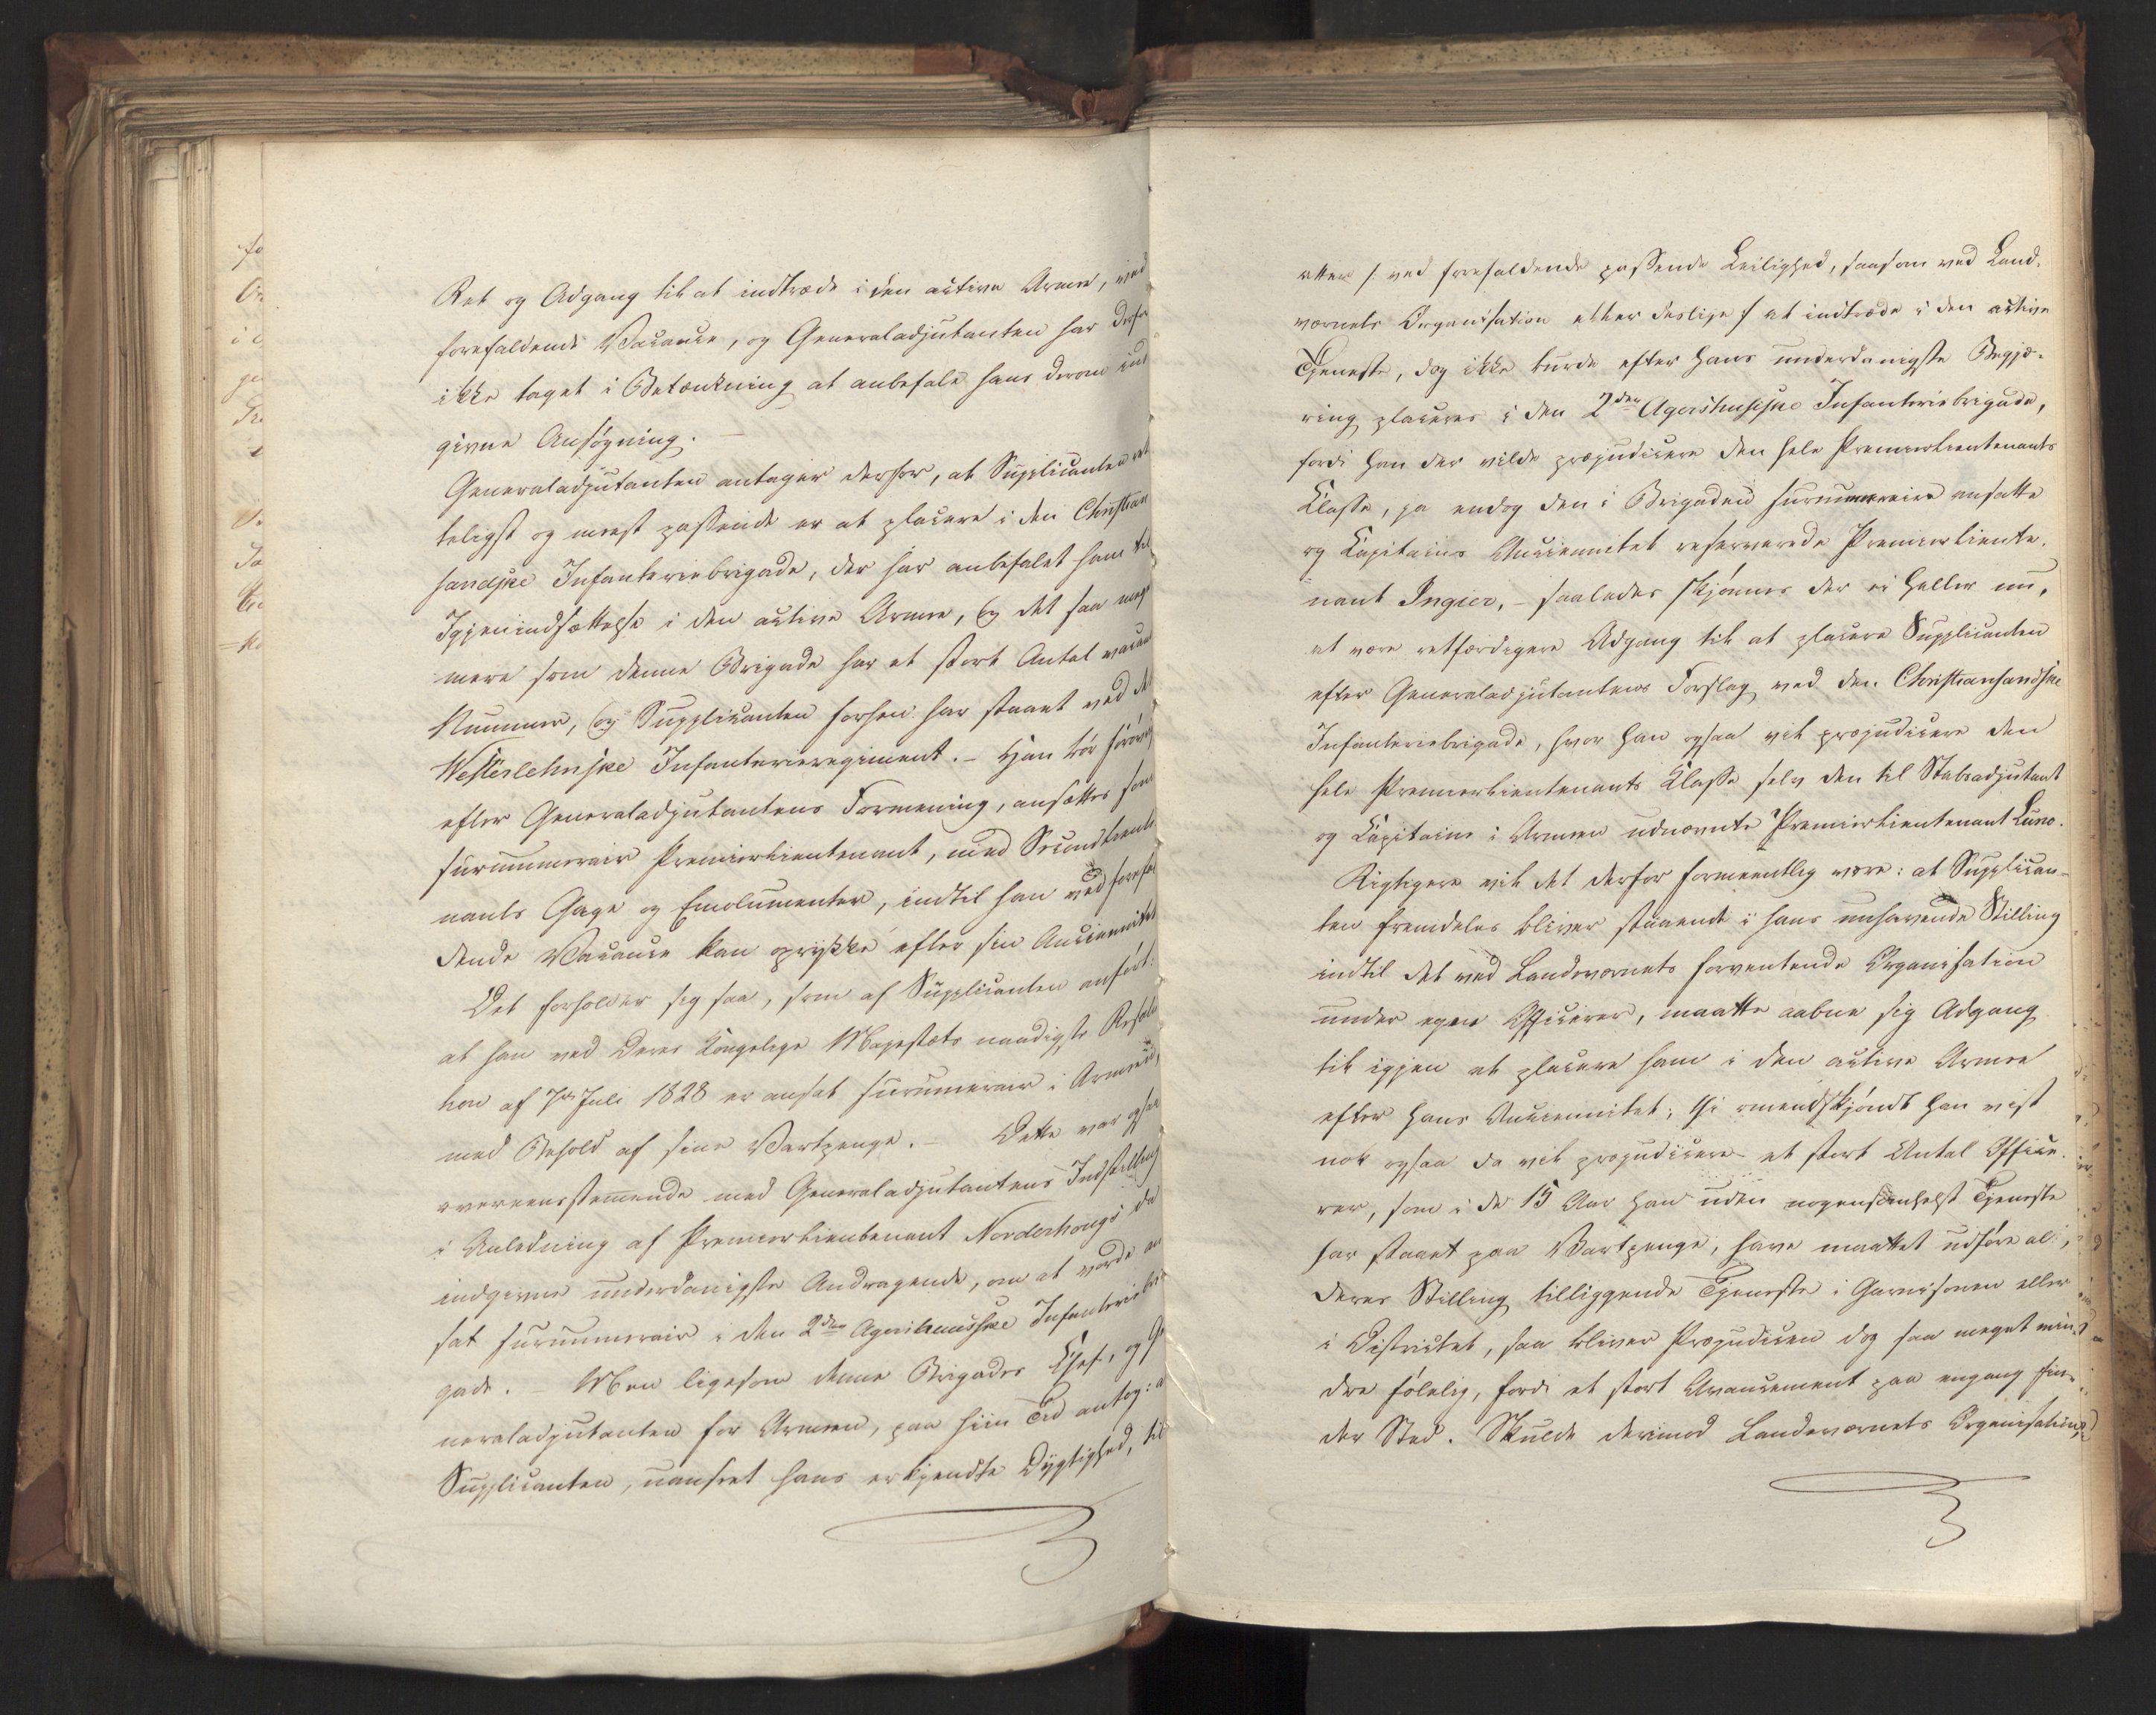 Ret og Adgang til at indtræde i den active Armee, ved
forefaldende Vacance, og Generaladjutanten har derfor
ikke taget i Betænkning at anbefale hans derom ind
givne Ansøgning.
Generaladjutanten antager derfor, at Supplicanten ret
teligst og meest passende er at placere i den Christian
sandske Infanteriebrigade, der har anbefalet ham til
Igjenindsættelse i den active Armee, og det saa meget
mere som denne Brigade har et stort Antal vacante
Nummere, og Supplicanten forhen har staaet ved det
Westerlehnske Infanterieregiment. – Han bør forøvrigt
efter Generaladjutantens Formening, ansættes som
surnummerair Premierlieutenant, med Secondlieute
nants Gage og Emolumenter, indtil han ved forefal
dende Vacance kan oprykke efter sin Anciennitet
Det forholder sig saa, som af Supplicanten anført:
at han ved Deres Kongelige Majestæts naadigste Resolu
tion af 7de Juli 1828 er ansat surnumerair i Armeen,
med Behold af sine Vartpenge. – Dette var ogsaa
overeensstemmende med Generaladjutantens Indstilling
i Anledning af Premierlieutenant Norderhougs da
indgivne underdanigste Andragende, om at vorde an
sat surnummerair i den 2den Agerhuusske Infanteriebri
gade. – Men ligesom denne Brigades Chef, og Ge
neraladjutanten for Armeen, paa hiin Tid antog: at
Supplicanten, uanseet hans erkjendte Dygtighed, til
atter /: ved forefaldende passende Leilighed, saasom ved Land-
værnets Organisation eller deslige :/ at indtræde i den active
Tjeneste, dog ikke burde efter hans underdanigste Begjæ-
ring placeres i den 2den Agershusiske Infanteriebrigade,
fordi han der vilde præjudicere den hele Premierlieutenants
Classe, ja endog den i Brigaden surnummeraire ansatte
og Capitains Anciennitet reserverede Premierlieute-
nant Ingier, – saaledes skjønnes der ei heller nu,
at være retfærdigere Adgang til at placere Supplicanten
efter Generaladjutantens Forslag ved den Christiansandske
Infanteriebrigade, hvor han ogsaa vil præjudicere den
hele Premierlieutenants Classe selv den til Stabsadjutant
og Capitaine i Armeen udnævnte Premierlieutenant Lund.
Rigtigere vil det derfor formeentlig være: at Supplican-
ten fremdeles bliver staaende i hans nuhavende Stilling
indtil det ved Landeværnets forventende Organisation
under egne Officierer, maatte aabne sig Adgang
til igjen at placere ham i den active Armee
efter hans Anciennitet; thi omendskjøndt han vist
nok ogsaa da vil præjudicere et stort Antal Officie-
rer, som i de 15 Aar han uden nogensomhelst Tjeneste
har staaet paa Vartpenge, have maattet udføre al i
deres Stilling tilliggende Tjeneste i Garnisonen eller
i Districtet, saa bliver Præjudicen dog saa meget min-
dre følelig, fordi et stort Avancement paa engang fin-
der Sted. Skulde derimod Landeværnets Organisation,